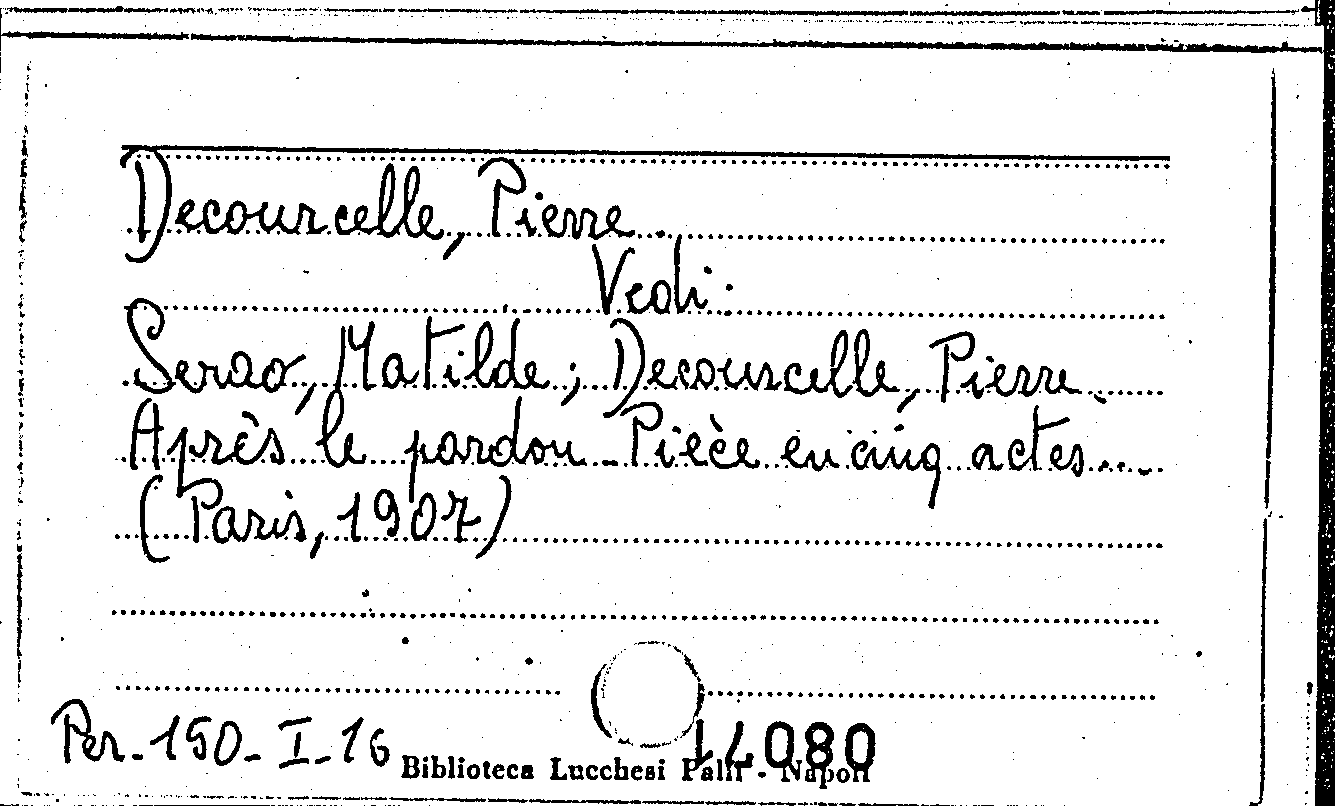 Decourcelle, Pierre.
Vedi:
Serao, Matilde; Decourcelle, Pierre.
Après le pardon - Pièce en cinq actes....
(Paris, 1907)
Per. 150 - I - 16
14080
Biblioteca Lucchesi Palli - Napoli